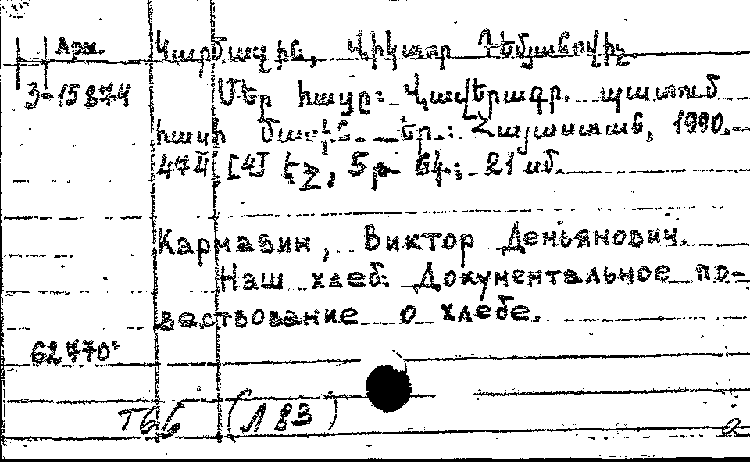 Арм. Կարմազին, Վիկտոր Դեմյանովիչ
3-15874 Մեր հացը: Վավերագր. պատում
հացի մասին. Եր.: Հայաստան, 1990.
474, [4] էջ, 5 ր. 21 սմ.
Кармазин, Виктор Демьянович.
Наш хлеб: Документальное по-
вествование о хлебе.
62770
Т66 (Л83) а